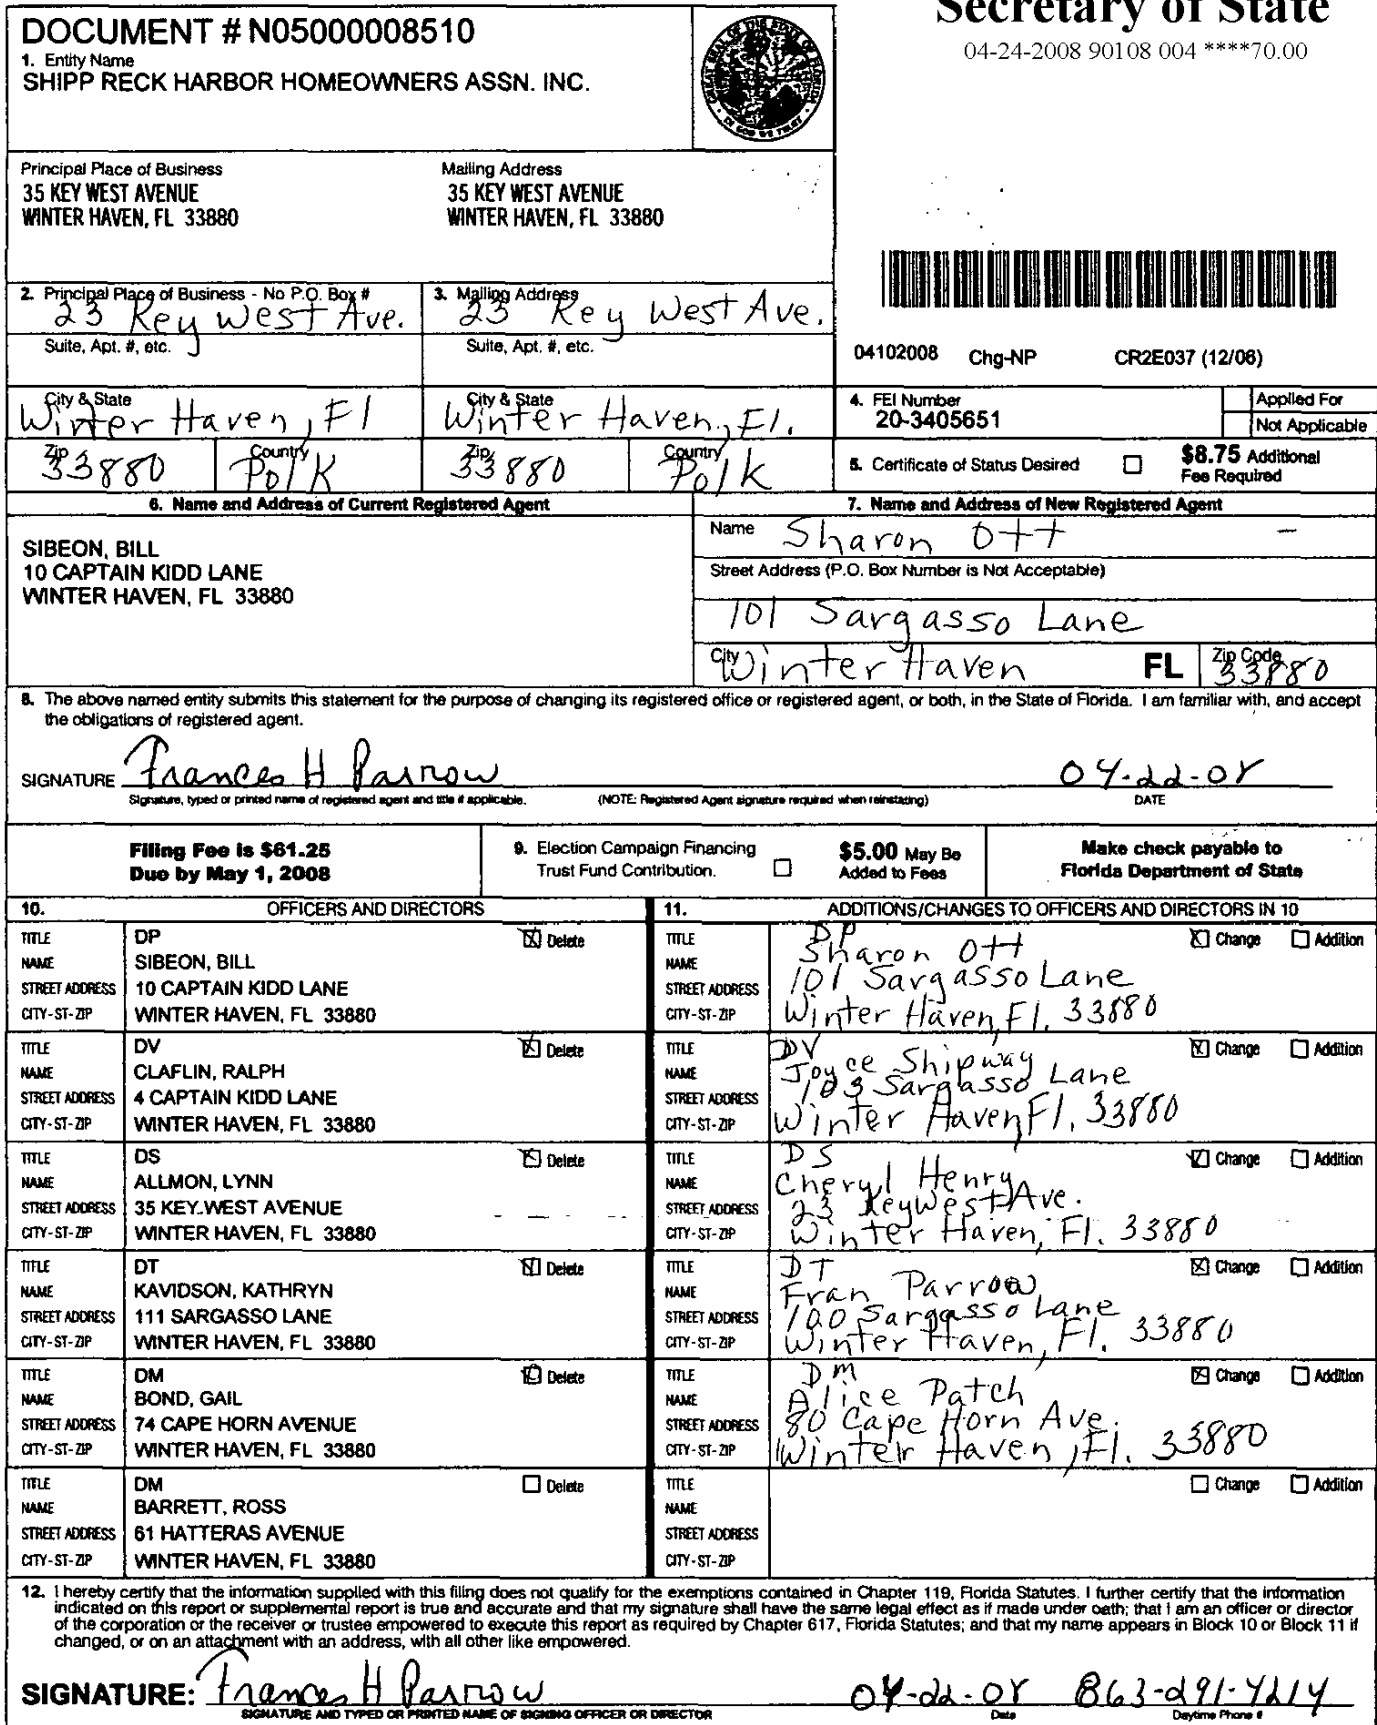 Secretary of State
04-24-2008 90108 004 ****70.00
DOCUMENT # N05000008510
1. Entity Name
SHIPP RECK HARBOR HOMEOWNERS ASSN. INC.
Principal Place of Business
35 KEY WEST AVENUE
WINTER HAVEN, FL 33880
Mailing Address
35 KEY WEST AVENUE
WINTER HAVEN, FL 33880
2. Principal Place of Business - No P.O. Box #
23 Key West Ave.
Suite, Apt. #, etc.
City & State
Winter Haven, Fl
Zip
33880
Country
Polk
3. Mailing Address
23 Key West Ave.
Suite, Apt. #, etc.
City & State
Winter Haven, Fl.
Zip
33880
Country
Polk
04102008 Chg-NP CR2E037 (12/06)
4. FEI Number
20-3405651
Applied For
Not Applicable
5. Certificate of Status Desired
$8.75 Additional
Fee Required
6. Name and Address of Current Registered Agent
SIBEON, BILL
10 CAPTAIN KIDD LANE
WINTER HAVEN, FL 33880
7. Name and Address of New Registered Agent
Name Sharon Ott -
Street Address (P.O. Box Number is Not Acceptable)
101 Sargasso Lane
City Winter Haven FL Zip Code 33880
8. The above named entity submits this statement for the purpose of changing its registered office or registered agent, or both, in the State of Florida. I am familiar with, and accept
the obligations of registered agent.
SIGNATURE Frances H Parrow 04-22-08
Signature, typed or printed name of registered agent and title if applicable. (NOTE: Registered Agent signature required when reinstating) DATE
Filing Fee is $61.25
Due by May 1, 2008
9. Election Campaign Financing
Trust Fund Contribution.
$5.00 May Be
Added to Fees
Make check payable to
Florida Department of State
10. OFFICERS AND DIRECTORS
TITLE DP Delete
NAME SIBEON, BILL
STREET ADDRESS 10 CAPTAIN KIDD LANE
CITY-ST-ZIP WINTER HAVEN, FL 33880
TITLE DV Delete
NAME CLAFLIN, RALPH
STREET ADDRESS 4 CAPTAIN KIDD LANE
CITY-ST-ZIP WINTER HAVEN, FL 33880
TITLE DS Delete
NAME ALLMON, LYNN
STREET ADDRESS 35 KEY WEST AVENUE
CITY-ST-ZIP WINTER HAVEN, FL 33880
TITLE DT Delete
NAME KAVIDSON, KATHRYN
STREET ADDRESS 111 SARGASSO LANE
CITY-ST-ZIP WINTER HAVEN, FL 33880
TITLE DM Delete
NAME BOND, GAIL
STREET ADDRESS 74 CAPE HORN AVENUE
CITY-ST-ZIP WINTER HAVEN, FL 33880
TITLE DM Delete
NAME BARRETT, ROSS
STREET ADDRESS 61 HATTERAS AVENUE
CITY-ST-ZIP WINTER HAVEN, FL 33880
11. ADDITIONS/CHANGES TO OFFICERS AND DIRECTORS IN 10
TITLE DP Change Addition
NAME Sharon Ott
STREET ADDRESS 101 Sargasso Lane
CITY-ST-ZIP Winter Haven, Fl. 33880
TITLE DV Change Addition
NAME Joyce Shipway
STREET ADDRESS 103 Sargasso Lane
CITY-ST-ZIP Winter Haven Fl. 33880
TITLE DS Change Addition
NAME Cheryl Henry
STREET ADDRESS 23 Key West Ave.
CITY-ST-ZIP Winter Haven, Fl. 33880
TITLE DT Change Addition
NAME Fran Parrow
STREET ADDRESS 100 Sargasso Lane
CITY-ST-ZIP Winter Haven, Fl. 33880
TITLE DM Change Addition
NAME Alice Patch
STREET ADDRESS 80 Cape Horn Ave.
CITY-ST-ZIP Winter Haven, Fl. 33880
TITLE Change Addition
NAME
STREET ADDRESS
CITY-ST-ZIP
12. I hereby certify that the information supplied with this filing does not qualify for the exemptions contained in Chapter 119, Florida Statutes. I further certify that the information
indicated on this report or supplemental report is true and accurate and that my signature shall have the same legal effect as if made under oath; that I am an officer or director
of the corporation or the receiver or trustee empowered to execute this report as required by Chapter 617, Florida Statutes; and that my name appears in Block 10 or Block 11 if
changed, or on an attachment with an address, with all other like empowered.
SIGNATURE: Frances H Parrow 04-22-08 863-291-4214
SIGNATURE AND TYPED OR PRINTED NAME OF SIGNING OFFICER OR DIRECTOR Date Daytime Phone #